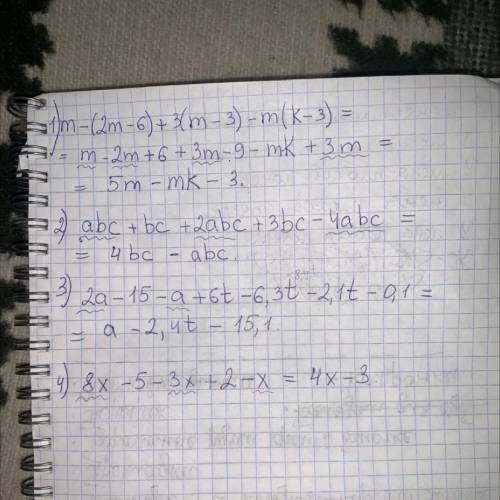 1) m - (2m - 6) + 3(m - 3) - m(k - 3) =
= m - 2m + 6 + 3m - 9 - mk + 3m =
= 5m - mk - 3.
2) abc + bc + 2abc + 3bc - 4abc =
= 4bc - abc.
3) 2a - 15 - a + 6t - 6,3t - 2,1t - 0,1 =
= a - 2,4t - 15,1
4) 8x - 5 - 3x + 2 - x = 4x - 3.